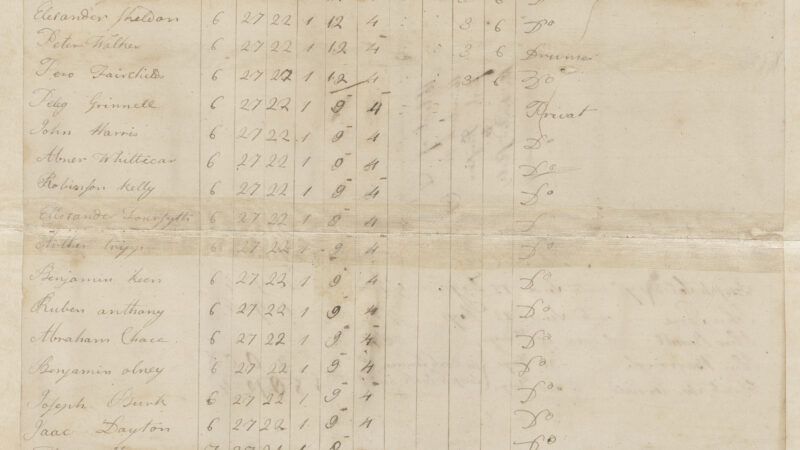 Elexander Sheldon 6 27 22 1 12 4 3 6 Do
Peter Walker 6 27 22 1 12 4 3 6 Drumer
Fero Fairchilds 6 27 22 1 12 4 3 6 Do
Peleg Grinnell 6 27 22 1 9 4 Privat
John Harris 6 27 22 1 9 4 Do
Abner Whittecar 6 27 22 1 9 4 Do
Robinson Kelly 6 27 22 1 9 4 Do
6 27 22 1 9 4
6 27 22 1 9 4 Do
Benjamin Keen 6 27 22 1 9 4 Do
Ruben anthony 6 27 22 1 9 4 Do
Abraham Chace 6 27 22 1 9 4 Do
Benjamin olney 6 27 22 1 9 4 Do
Joseph Burk 6 27 22 1 9 4 Do
Jaac Dayton 6 27 22 1 9 4 Do
Do